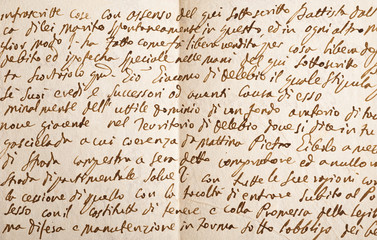 infrascritte cose con assenso del qui sottoscritto Battista dal
ca di lei marito spontaneamente in questo, ed in ogni altro m
glior modo ha fatto come fa libera vendita per cosa libera da
debito ed ipoteca speciale nelle mani del qui sottoscritto
Gio Giacomo di Delebio il quale stipula
se suoi eredi e successori ed aventi causa di esso
minalmente dell' utile dominio di un fondo a
nove giacente nel Territorio di Delebio dove si dice in
a cui coerenza da mattina Pietro
di strada campestre a sera detto compratore ed a nullo
strada di partimentale Salve con tutte le sue ragioni con
la cessione di quello con le facoltà di entrare subito al Po
sesso con il costituto di tenere e colla Promessa della legit
ma difesa e manutenzione in forma sotto l'obbligo dei be